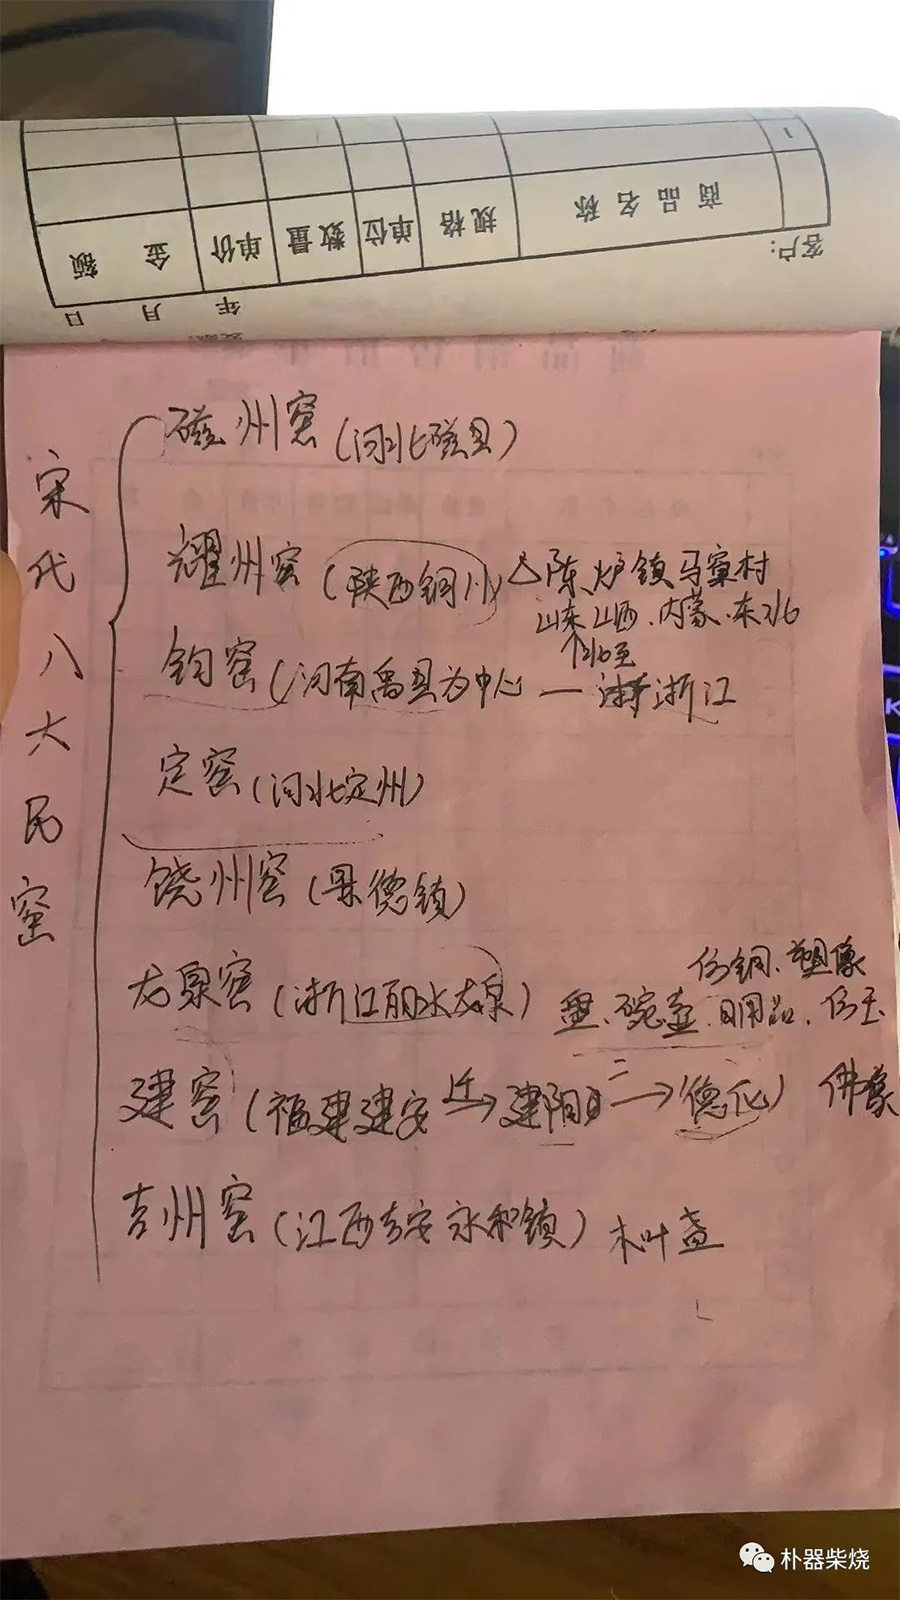 客户:
商品名称 规格 单位 数量 单价 金额
年 月 日
1
宋代八大民窑
磁州窑(河北磁县)
耀州窑(陕西铜川)△陈炉镇马窠村
山东山西、内蒙、东北
↑北至
钧窑(河南禹县为中心 — 浙江
定窑(河北定州)
饶州窑(景德镇)
仿铜、塑像
龙泉窑(浙江丽水龙泉) 盘、碗壶、日用品、仿玉
建窑(福建建安 迁→ 建阳 二→ 德化) 佛像
吉州窑(江西吉安永和镇) 木叶盏
朴器柴烧